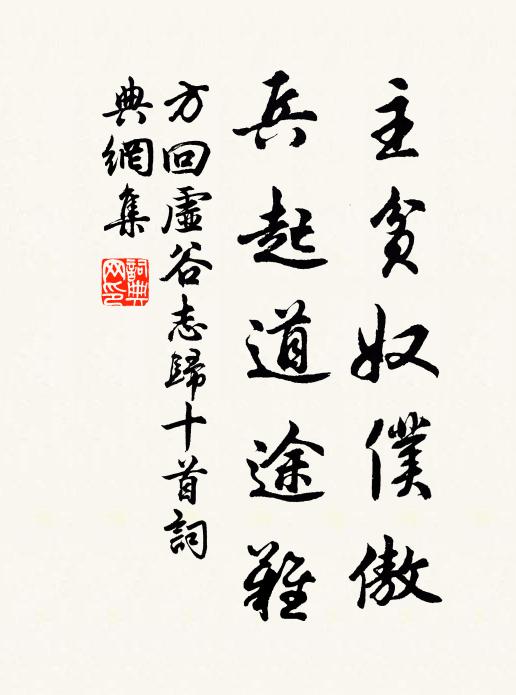 主貧奴僕傲
兵起道途難
方回虛谷志歸十首詞
典網集
詞典網印